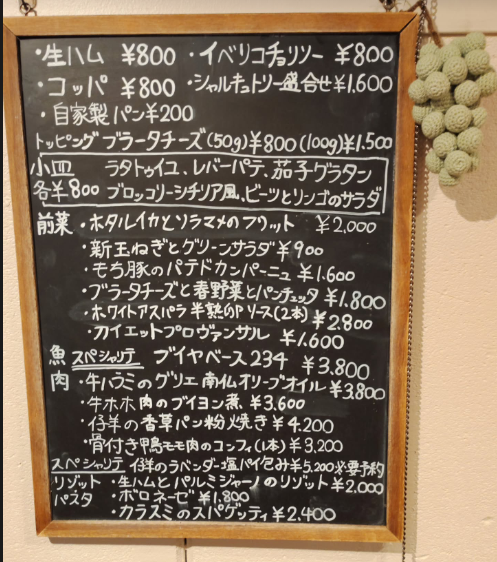 ・生ハム ¥800 ・イベリコチョリソー ¥800
・コッパ ¥800 ・シャルキュトリー盛合せ¥1.600
・自家製パン¥200
トッピング ブラータチーズ(50g)¥800 (100g)¥1.500
小皿 ラタトゥイユ、レバーパテ、茄子グラタン
各¥800 ブロッコリーシチリア風、ビーツとリンゴのサラダ
前菜 ・ホタルイカとソラマメのフリット ¥2,000
・新玉ねぎとグリーンサラダ ¥900
・もち豚のパテドカンパーニュ ¥1.600
・ブラータチーズと春野菜とパンチェッタ ¥1.800
・ホワイトアスパラ 半熟のソース(2本) ¥2.800
・カイエットプロヴァンサル ¥1.600
魚 スペシャリテ ブイヤベース234 ¥3.800
肉 ・牛ハラミのグリエ 南仏オリーブオイル ¥3.800
・牛ホホ肉のブイヨン煮 ¥3.600
・仔羊の香草パン粉焼き ¥4.200
・骨付き鴨モモ肉のコンフィ(1本) ¥3,200
スペシャリテ 仔羊のラベンダー塩パイ包み¥5,200 必要予約
リゾット ・生ハムとパルミジャーノのリゾット ¥2,000
パスタ ・ボロネーゼ ¥1.800
・カラスミのスパゲッティ ¥2,400